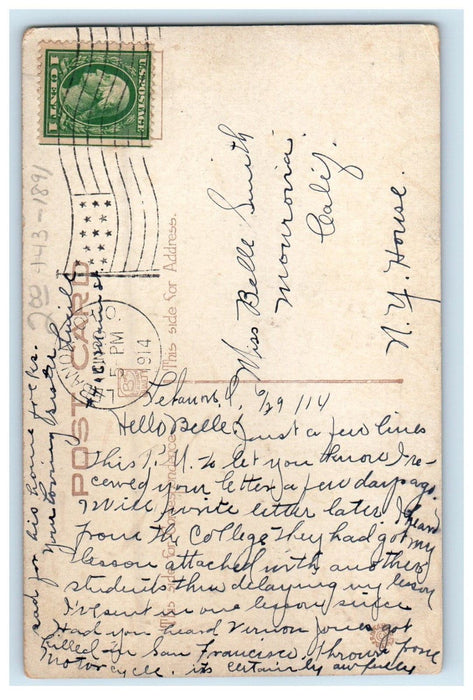 U.S. POSTAGE
1 CENT 1
443-1891
POST CARD
This side for Address.
5 PM
1914
Miss Belle Smith
Monrovia
Calif.
N. Y. House.
6/29/14
Hello Belle:
Just a few lines
This P. M. to let you know I re-
ceived your letter a few days ago.
Will write letter later. I heard
from the College They had got my
lesson attached with another
students thus delaying my lesson
I've sent in one lesson since
Had you heard Vernon Jones got
killed in San Francisco. Thrown from
motor cycle. its certainly awfully
sad for his home folks.
Your loving Sister